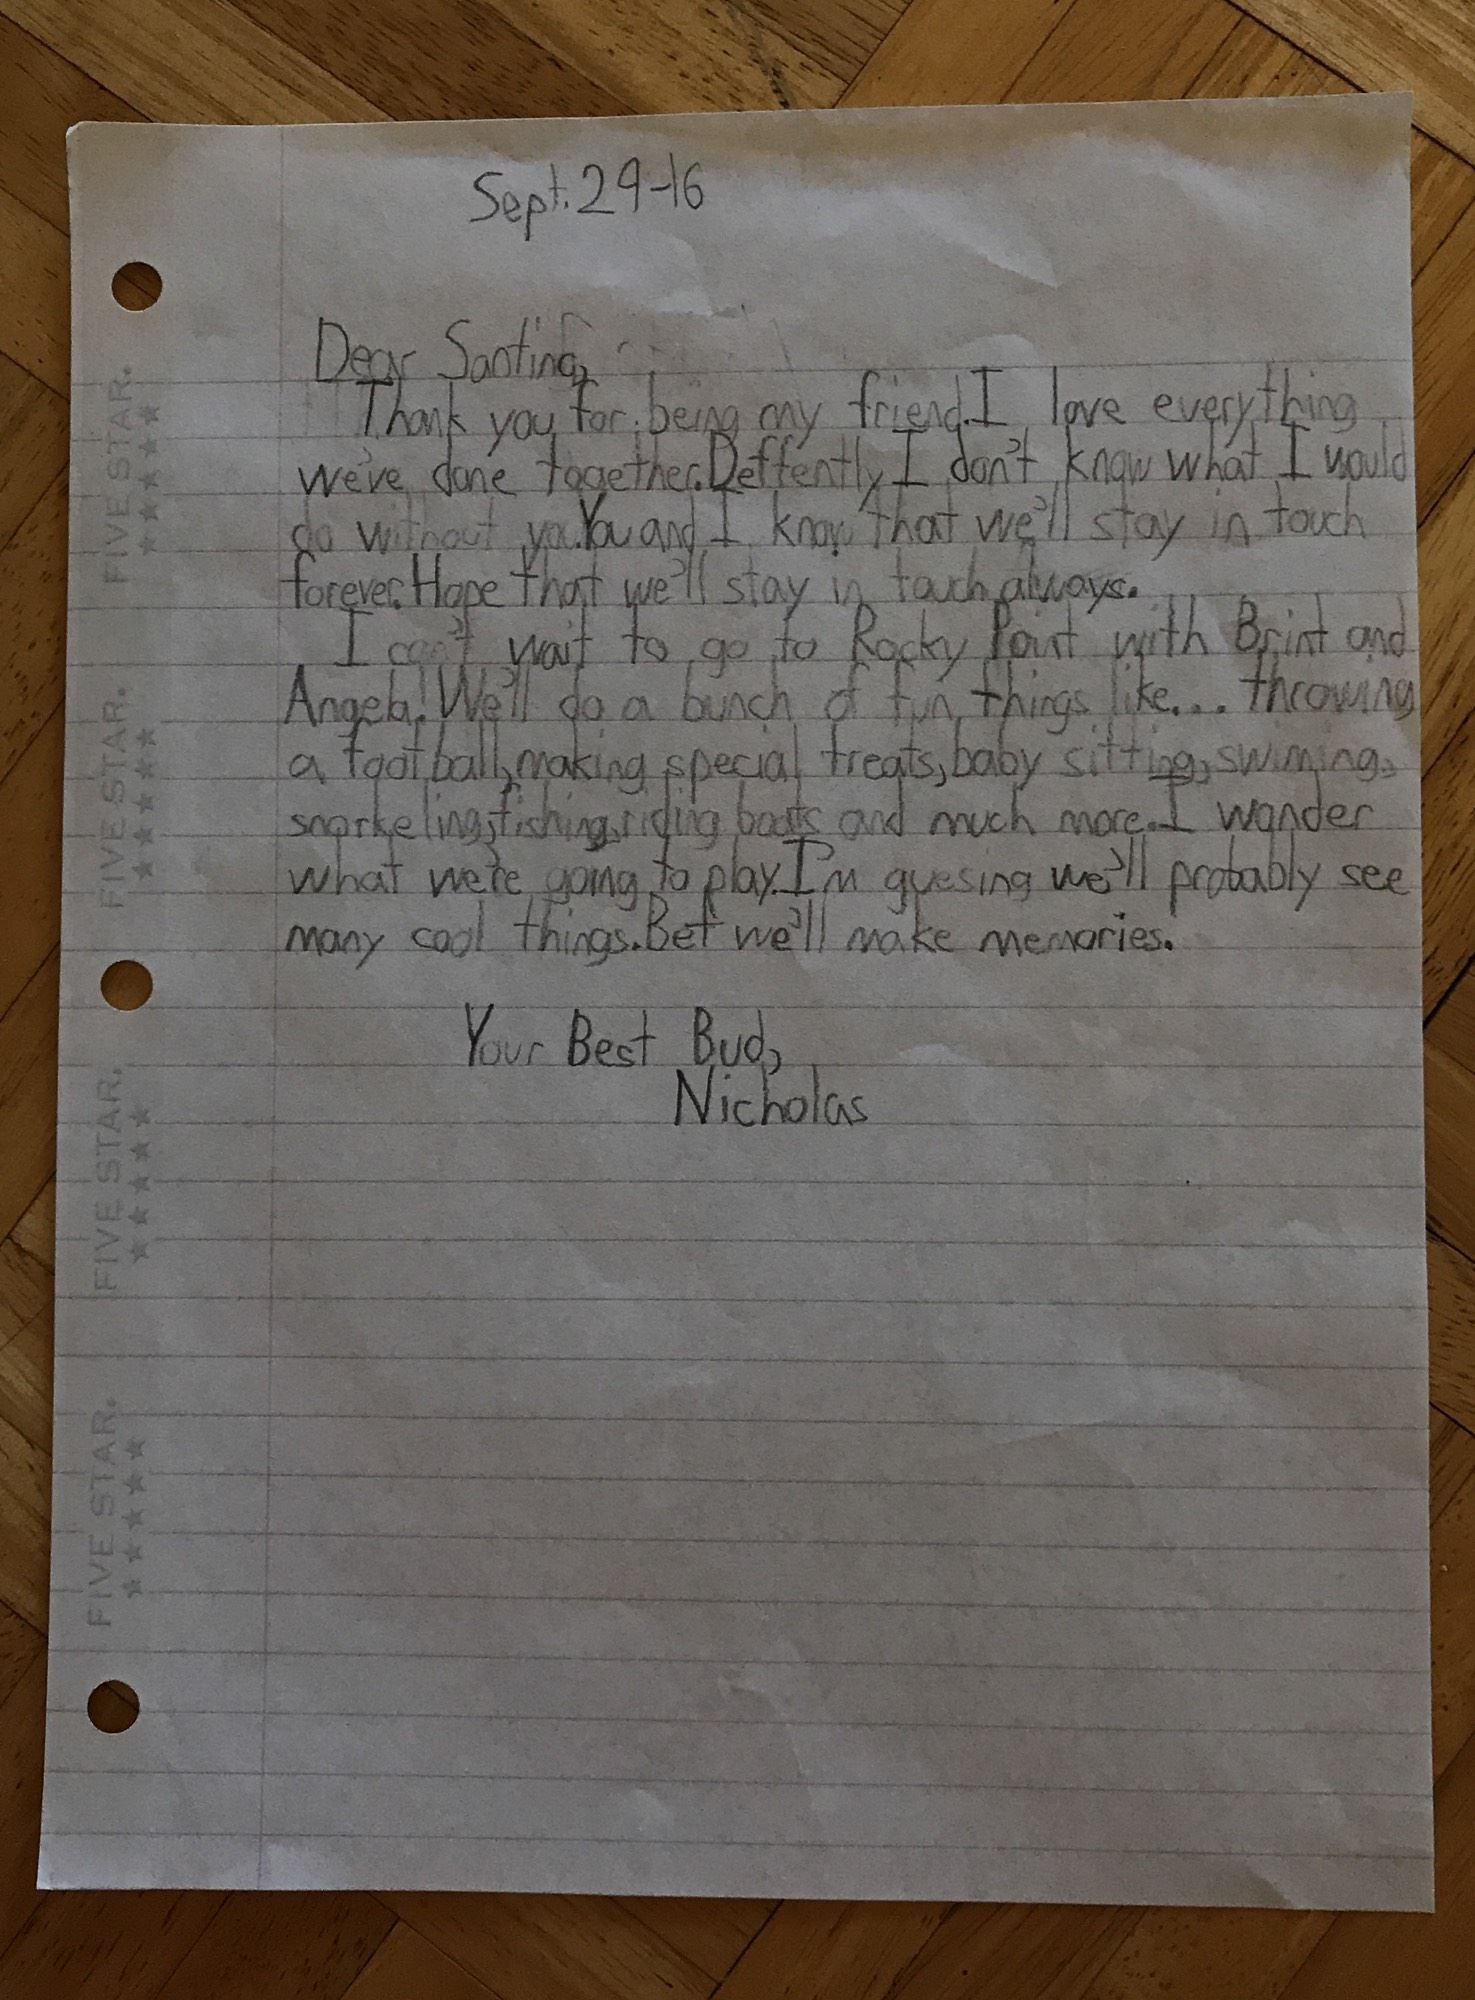 Sept. 29-16
Dear Santina,
Thank you for being my friend. I love everything
we've done together. Deffently, I don't know what I would
do without you. You and I know that we'll stay in touch
forever. Hope that we'll stay in touch always.
I can't wait to go to Rocky Point with Brint and
Angela! We'll do a bunch of fun things like... throwing
a football, making special treats, baby sitting, swiming,
snorkeling, fishing, riding boats and much more. I wonder
what we're going to play. I'm guesing we'll probably see
many cool things. Bet we'll make memories.
Your Best Bud,
Nicholas
FIVE STAR.
FIVE STAR.
FIVE STAR.
FIVE STAR.